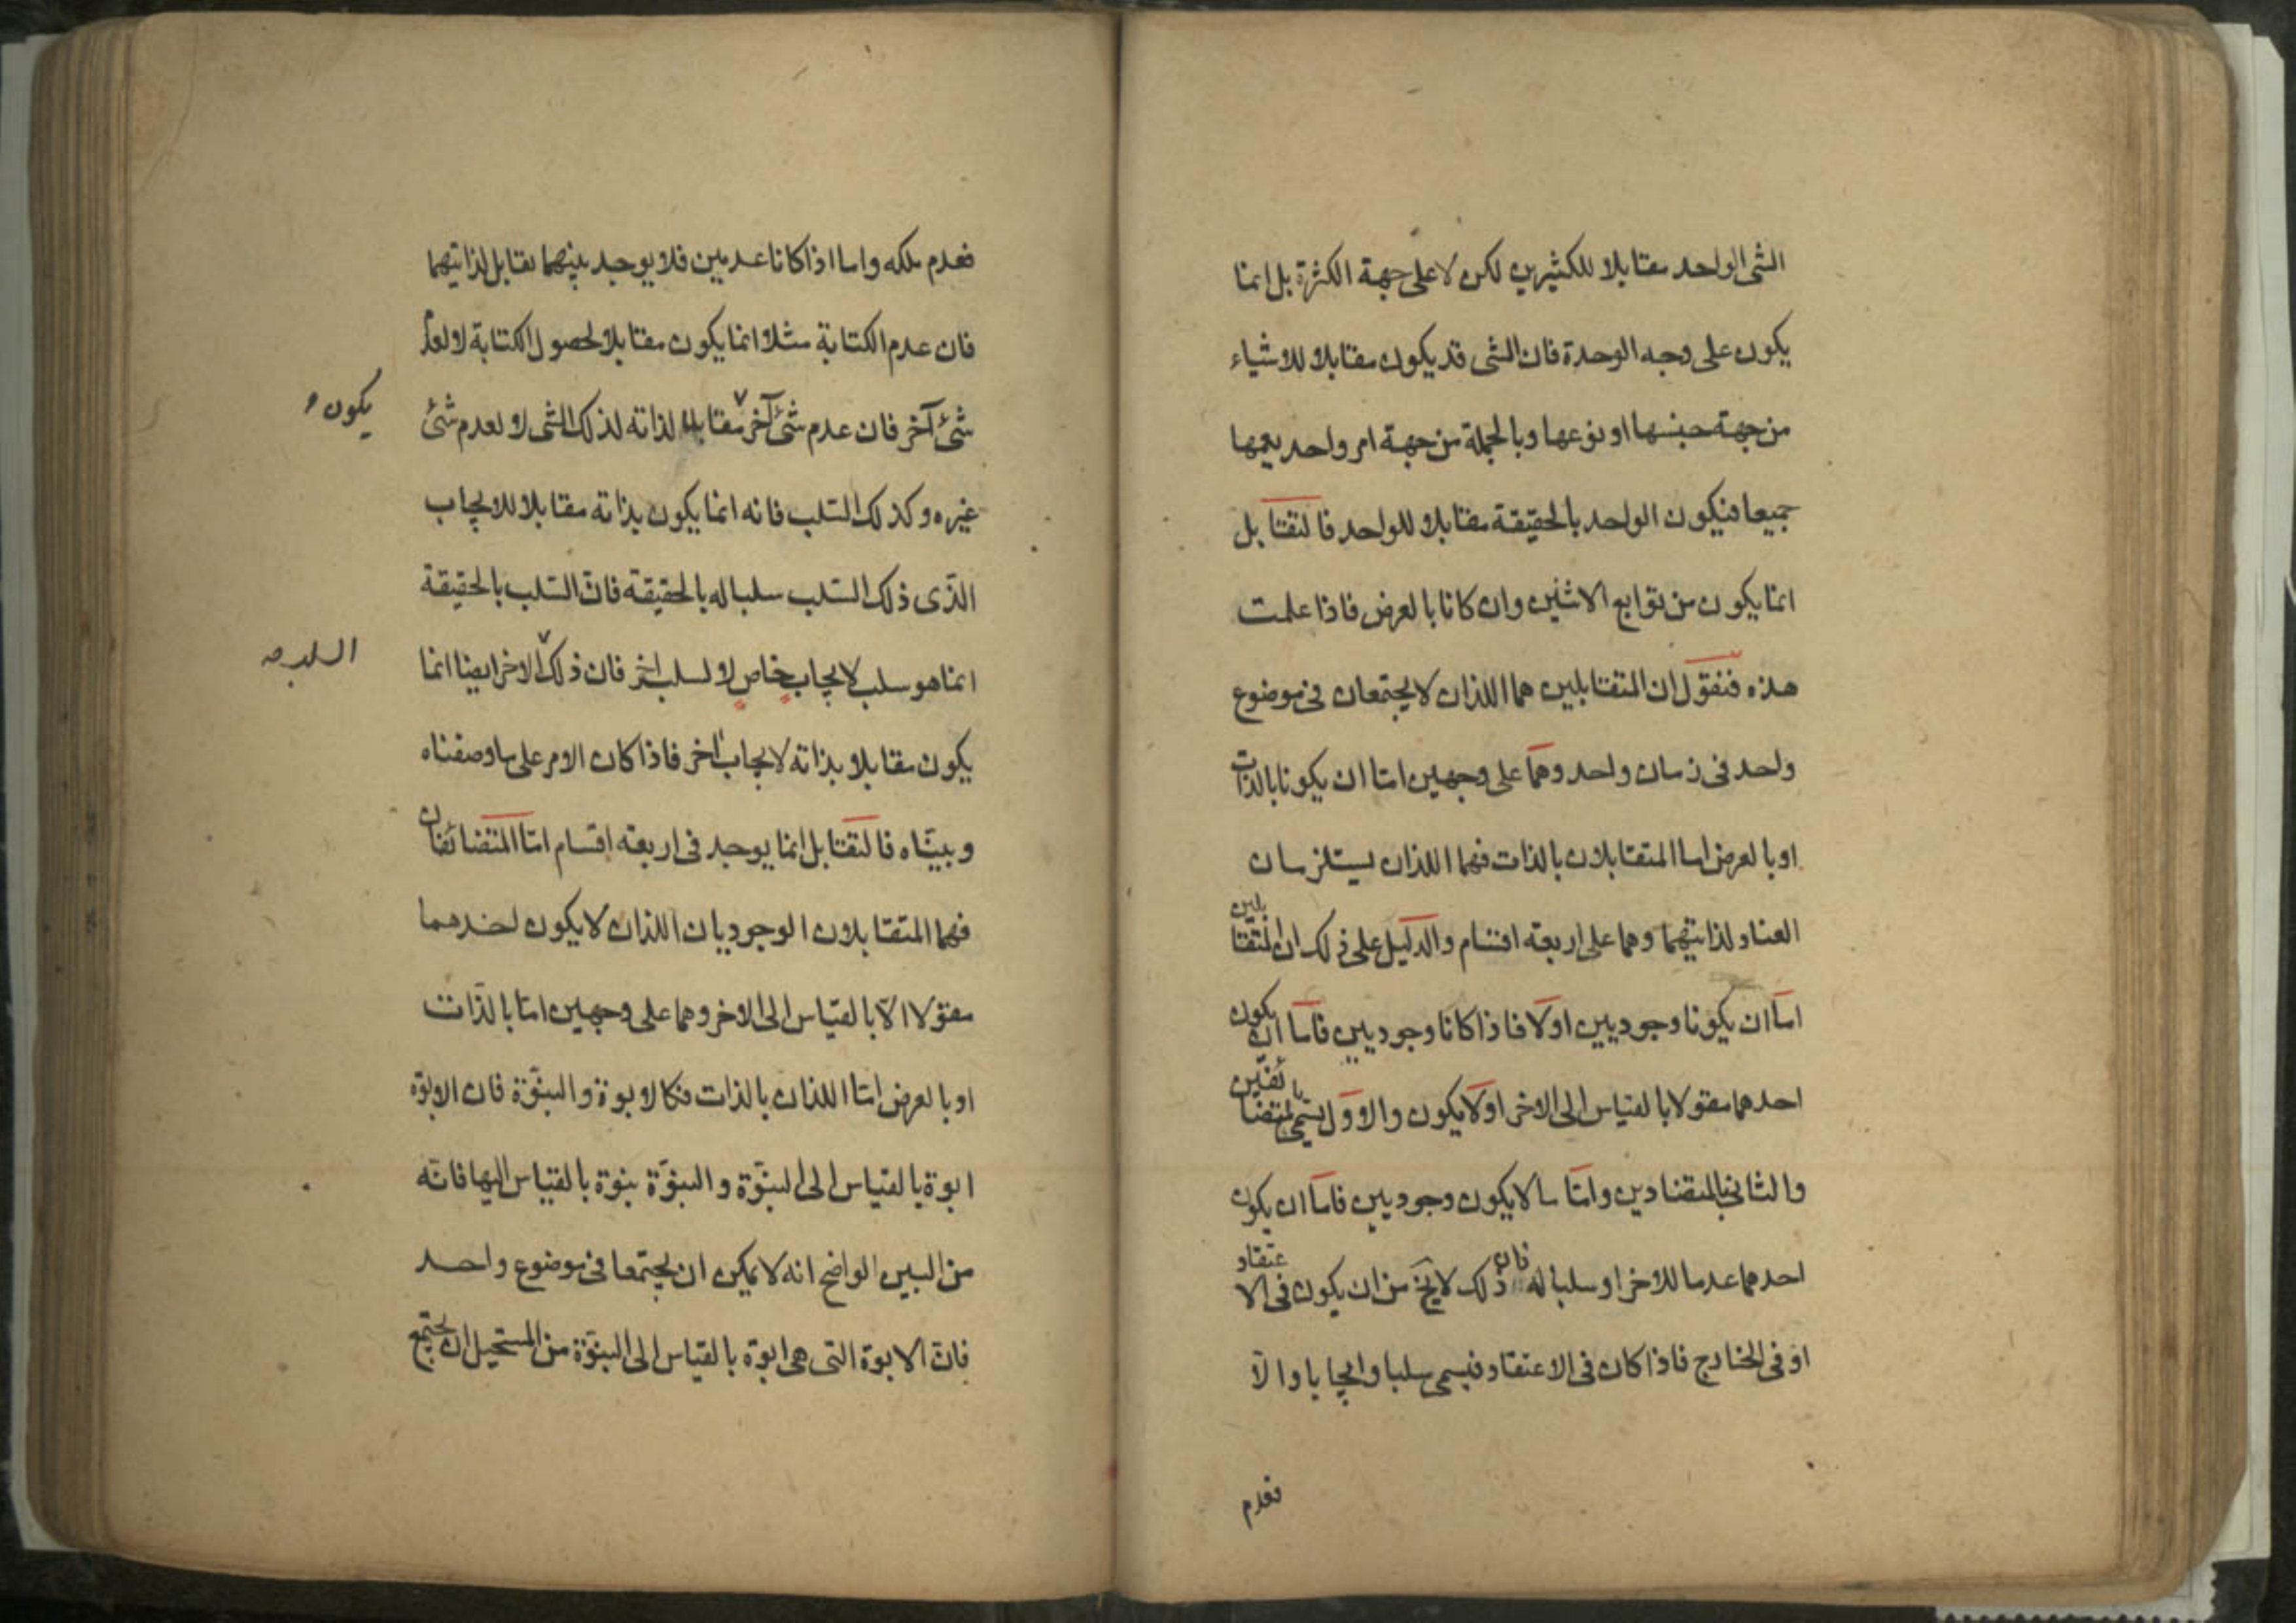 الشئ الواحد مقابلا للكثيرين لكن لا على جهة الكثرة بل انما
يكون على وجه الوحدة فان الشى قد يكون مقابلا للاشياء
من جهة جنسها او نوعها وبالجملة من جهة امر واحد يعمها
جميعا فيكون الواحد بالحقيقة مقابلا للواحد فالتقابل
انما يكون من توابع الاثنين وان كانا بالعرض فاذا علمت
هذه فنقول ان المتقابلين هما اللذان لا يجتمعان فى موضوع
واحد فى زمان واحد وهما على وجهين امّا ان يكونا بالذات
او بالعرض اما المتقابلان بالذات فهما اللذان يستلزمان
العناد لذاتيهما وهما على اربعة اقسام والدليل على ذلك ان المتقابلين
امّا ان يكونا وجوديين اولا فاذا كانا وجوديين فامّا ان يكون
احدهما مقولا بالقياس الى الاخر اولا يكون والاوّل يسمّى بالمتضائفين
والثانى بالمتضادين وامّا ما لا يكون وجوديين فامّا ان يكون
احدهما عدما للاخر او سلبا له فان ذلك لا يخ من ان يكون فى الاعتقاد
او فى الخارج فاذا كان فى الاعتقاد فيسمى سلبا وايجابا والّا
فعدم
فعدم ملكه واما اذا كانا عدميين فلا يوجد بينهما تقابل لذاتيهما
فان عدم الكتابة مثلا انما يكون مقابلا لحصول الكتابة لا لعدم
شئ آخر فان عدم شئ آخر مقابلا لذاته لذلك الشى لا لعدم شئ
يكون
غيره وكذلك السّلب فانه انما يكون بذاته مقابلا للايجاب
الذّى ذلك السّلب سلبا له بالحقيقة فانّ السّلب بالحقيقة
انما هو سلب لايجاب خاص لا لسلب اخر فان ذلك الاخر ايضا انما
السلب صه
يكون مقابلا بذاته لايجاب اخر فاذا كان الامر على ما وصفناه
وبيّناه فالتقابل انما يوجد فى اربعة اقسام امّا المتضائفان
فهما المتقابلان الوجوديان اللذان لا يكون احدهما
مقولا الّا بالقياس الى الاخر وهما على وجهين امّا بالذّات
او بالعرض امّا اللذان بالذات فكالابوة والبنوّة فان الابوّه
ابوة بالقياس الى البنوّة والبنوّة بنوة بالقياس اليها فانّه
من البين الواضح انه لا يمكن ان يجتمعا فى موضوع واحد
فانّ الابوة التى هى ابوّة بالقياس الى البنوّة من المستحيل ان يجتمع